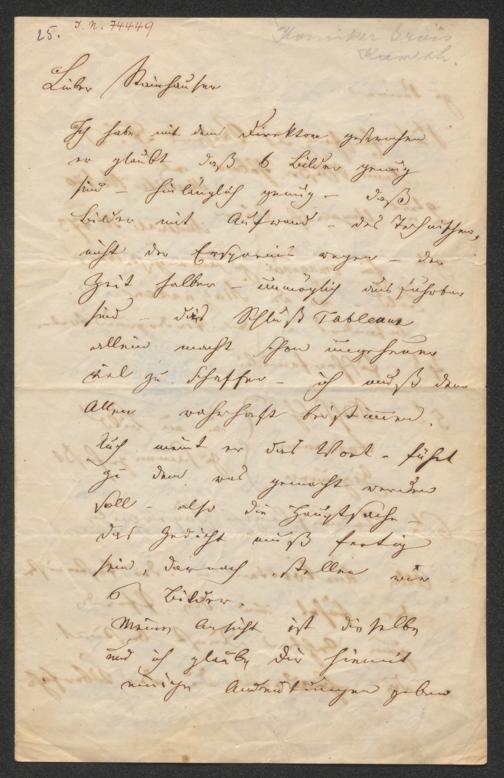 25.
I. N. 74449
Komiker Grois
Lieber Stainhauser
Ich habe mit dem Direktor gesprochen
er glaubt daß 6 Bilder genug
sind – hinlänglich genug – daß
Bilder mit Aufwand – des Technischen,
nicht der Ersparnis wegen – der
Zeit halber – unmöglich ausführbar
sind – das Schluß Tableaux
allein macht schon ungeheuer
viel zu schaffen – ich muß dem
Allen wahrhaft beistimmen.
Auch meint er das Wort – führt
zu dem was gemacht werden
soll – also die Hauptsache –
das Gedicht muß fertig
sein, darnach stellen wir
6 Bilder.
Meine Ansicht ist dieselbe
und ich glaube Dir hiemit
einige Andeutungen geben